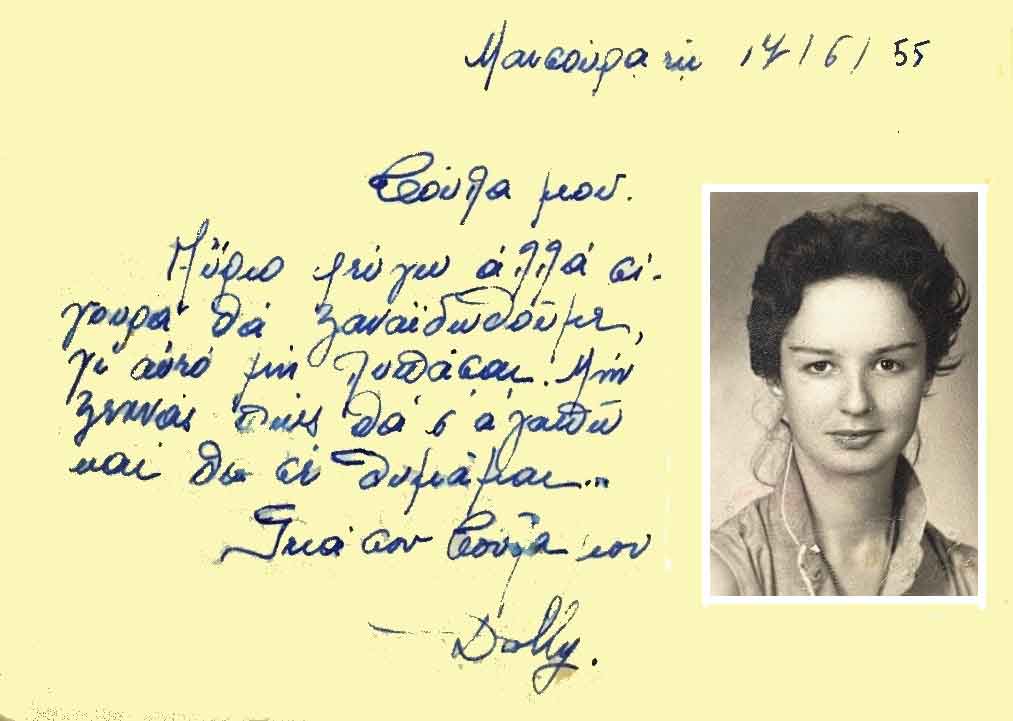 Μανσούρα τη 17/6/55
Σούλα μου.
Αὔριο φεύγω ἀλλά σί-
γουρα θά ξαναϊδωθοῦμε,
γι αὐτό μή λυπᾶσαι. Μήν
ξεχνᾶς πώς θά σ' ἀγαπῶ
καί θα σέ θυμᾶμαι...
Γειά σου Σούλα μου
Dolly.